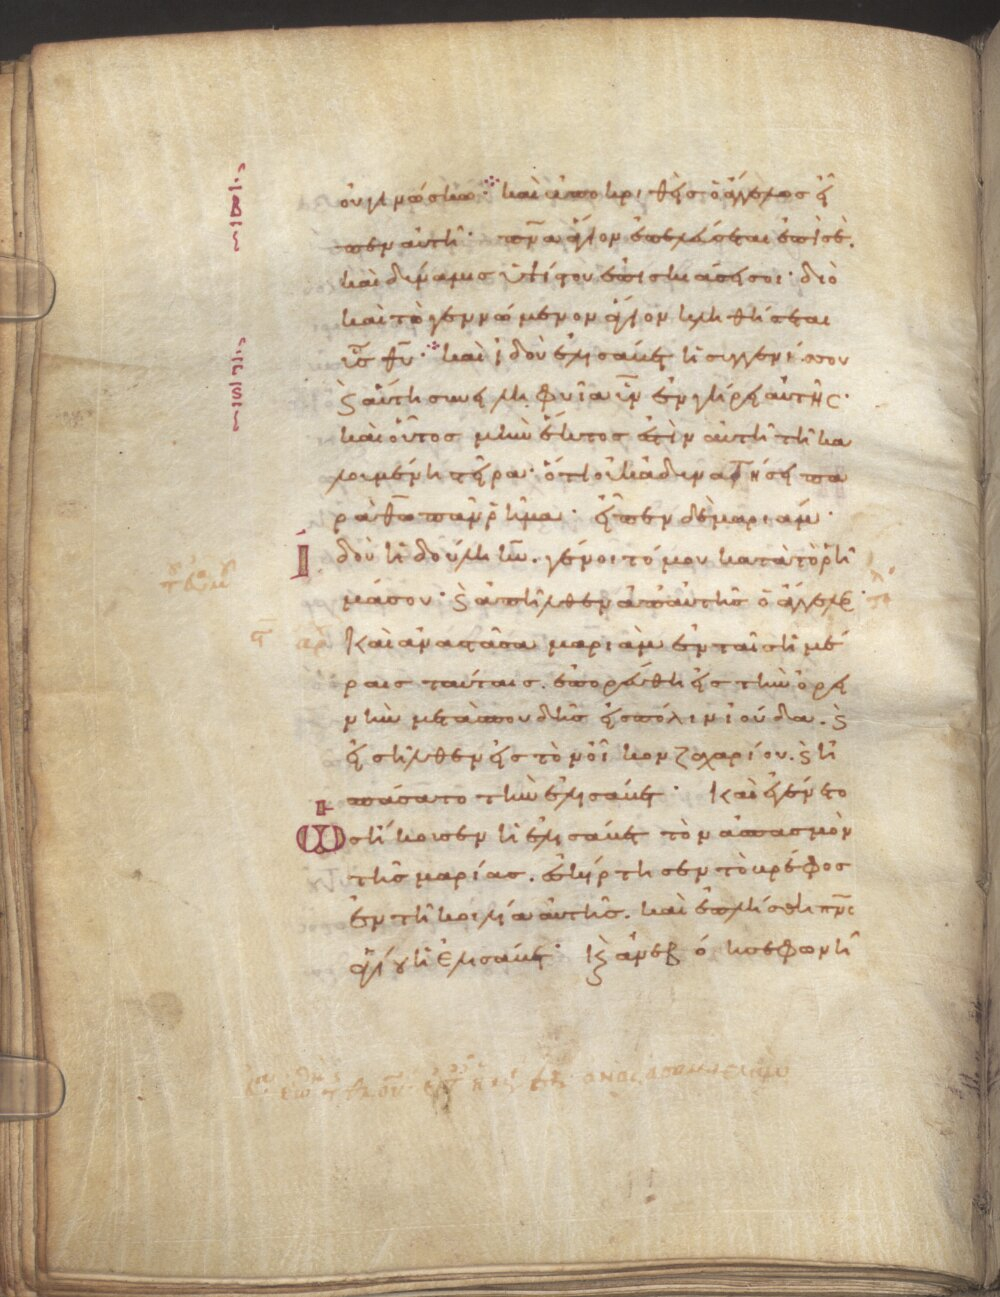 οὐ γινώσκω· καὶ ἀποκριθεὶς ὁ ἄγγελος εἶ
πεν αὐτῇ· πνα ἅγιον ἐπελεύσεται ἐπὶ σὲ.
καὶ δύναμις ὑψίστου ἐπισκιάσει σοι· διὸ
καὶ τὸ γεννώμενον ἅγιον κληθήσεται
υς θυ· καὶ ἰδοὺ ἐλισάβετ ἡ συγγενής σου
ϗ αὐτὴ συνειληφυῖα υν ἐν γήρει αὐτῆς·
καὶ οὗτος μὴν ἕκτος ἐστὶν αὐτῇ τῇ κα
λουμένῃ στείρα· ὅτι οὐκ ἀδυνατήσει πα
ρὰ θω πᾶν ῥῆμα· εἶπεν δὲ μαριάμ·
Ἰδοὺ ἡ δούλη κυ. γένοιτό μοι κατὰ τὸ ῥῆ
μά σου· ϗ ἀπῆλθεν ἀπ' αὐτῆς ὁ ἄγγελος·
Καὶ ἀναστᾶσα μαριὰμ ἐν ταῖς ἡμέ
ραις ταύταις. ἐπορεύθη εἰς τὴν ὀρει
νὴν μετὰ σπουδῆς εἰς πόλιν ἰούδα. ϗ
εἰσῆλθεν εἰς τὸν οἶκον ζαχαρίου. ϗ ἠ
σπάσατο τὴν ἐλισάβετ· Καὶ ἐγένετο
ὡς ἤκουσεν ἡ ἐλισάβετ τὸν ἀσπασμὸν
τῆς μαρίας. ἐσκίρτησεν τὸ βρέφος
ἐν τῇ κοιλία αὐτῆς. καὶ ἐπλήσθη πνς
ἁγίου ἡ ἐλισάβετ· Κϗ ἀνεβόησε φωνῇ